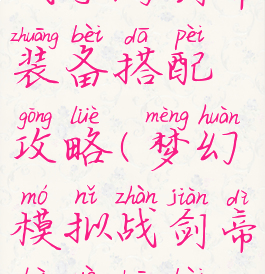 zhuāng bèi dā pèi
装备搭配
gōng lüè mèng huàn
攻略(梦幻
mó nǐ zhàn jiàn dì
模拟战剑帝